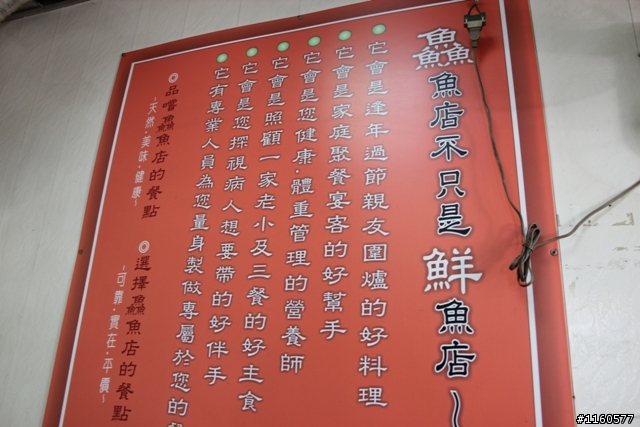 鱻魚店不只是鮮魚店~
它會是逢年過節親友圍爐的好料理
它會是家庭聚餐宴客的好幫手
它會是您健康·體重管理的營養師
它會是照顧一家老小及三餐的好主食
它會是您探視病人想要帶的好伴手
它有專業人員為您量身製做專屬於您的餐
◎品嚐鱻魚店的餐點
~天然·美味·健康~
◎選擇鱻魚店的餐點
~可靠·實在·平價~
#1160577